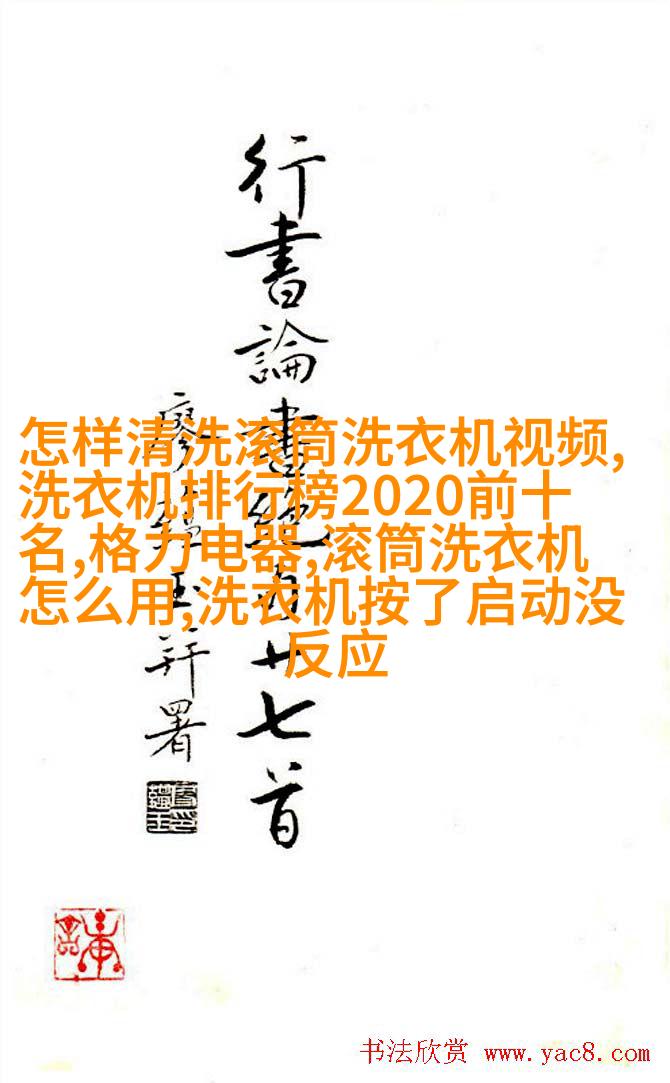 行書論書絕百廿七首
廖蘊玉并署
怎样清洗滚筒洗衣机视频,
洗衣机排行榜2020前十
名,格力电器,滚筒洗衣机
怎么用,洗衣机按了启动没
反应
书法欣赏 www.yac8.com